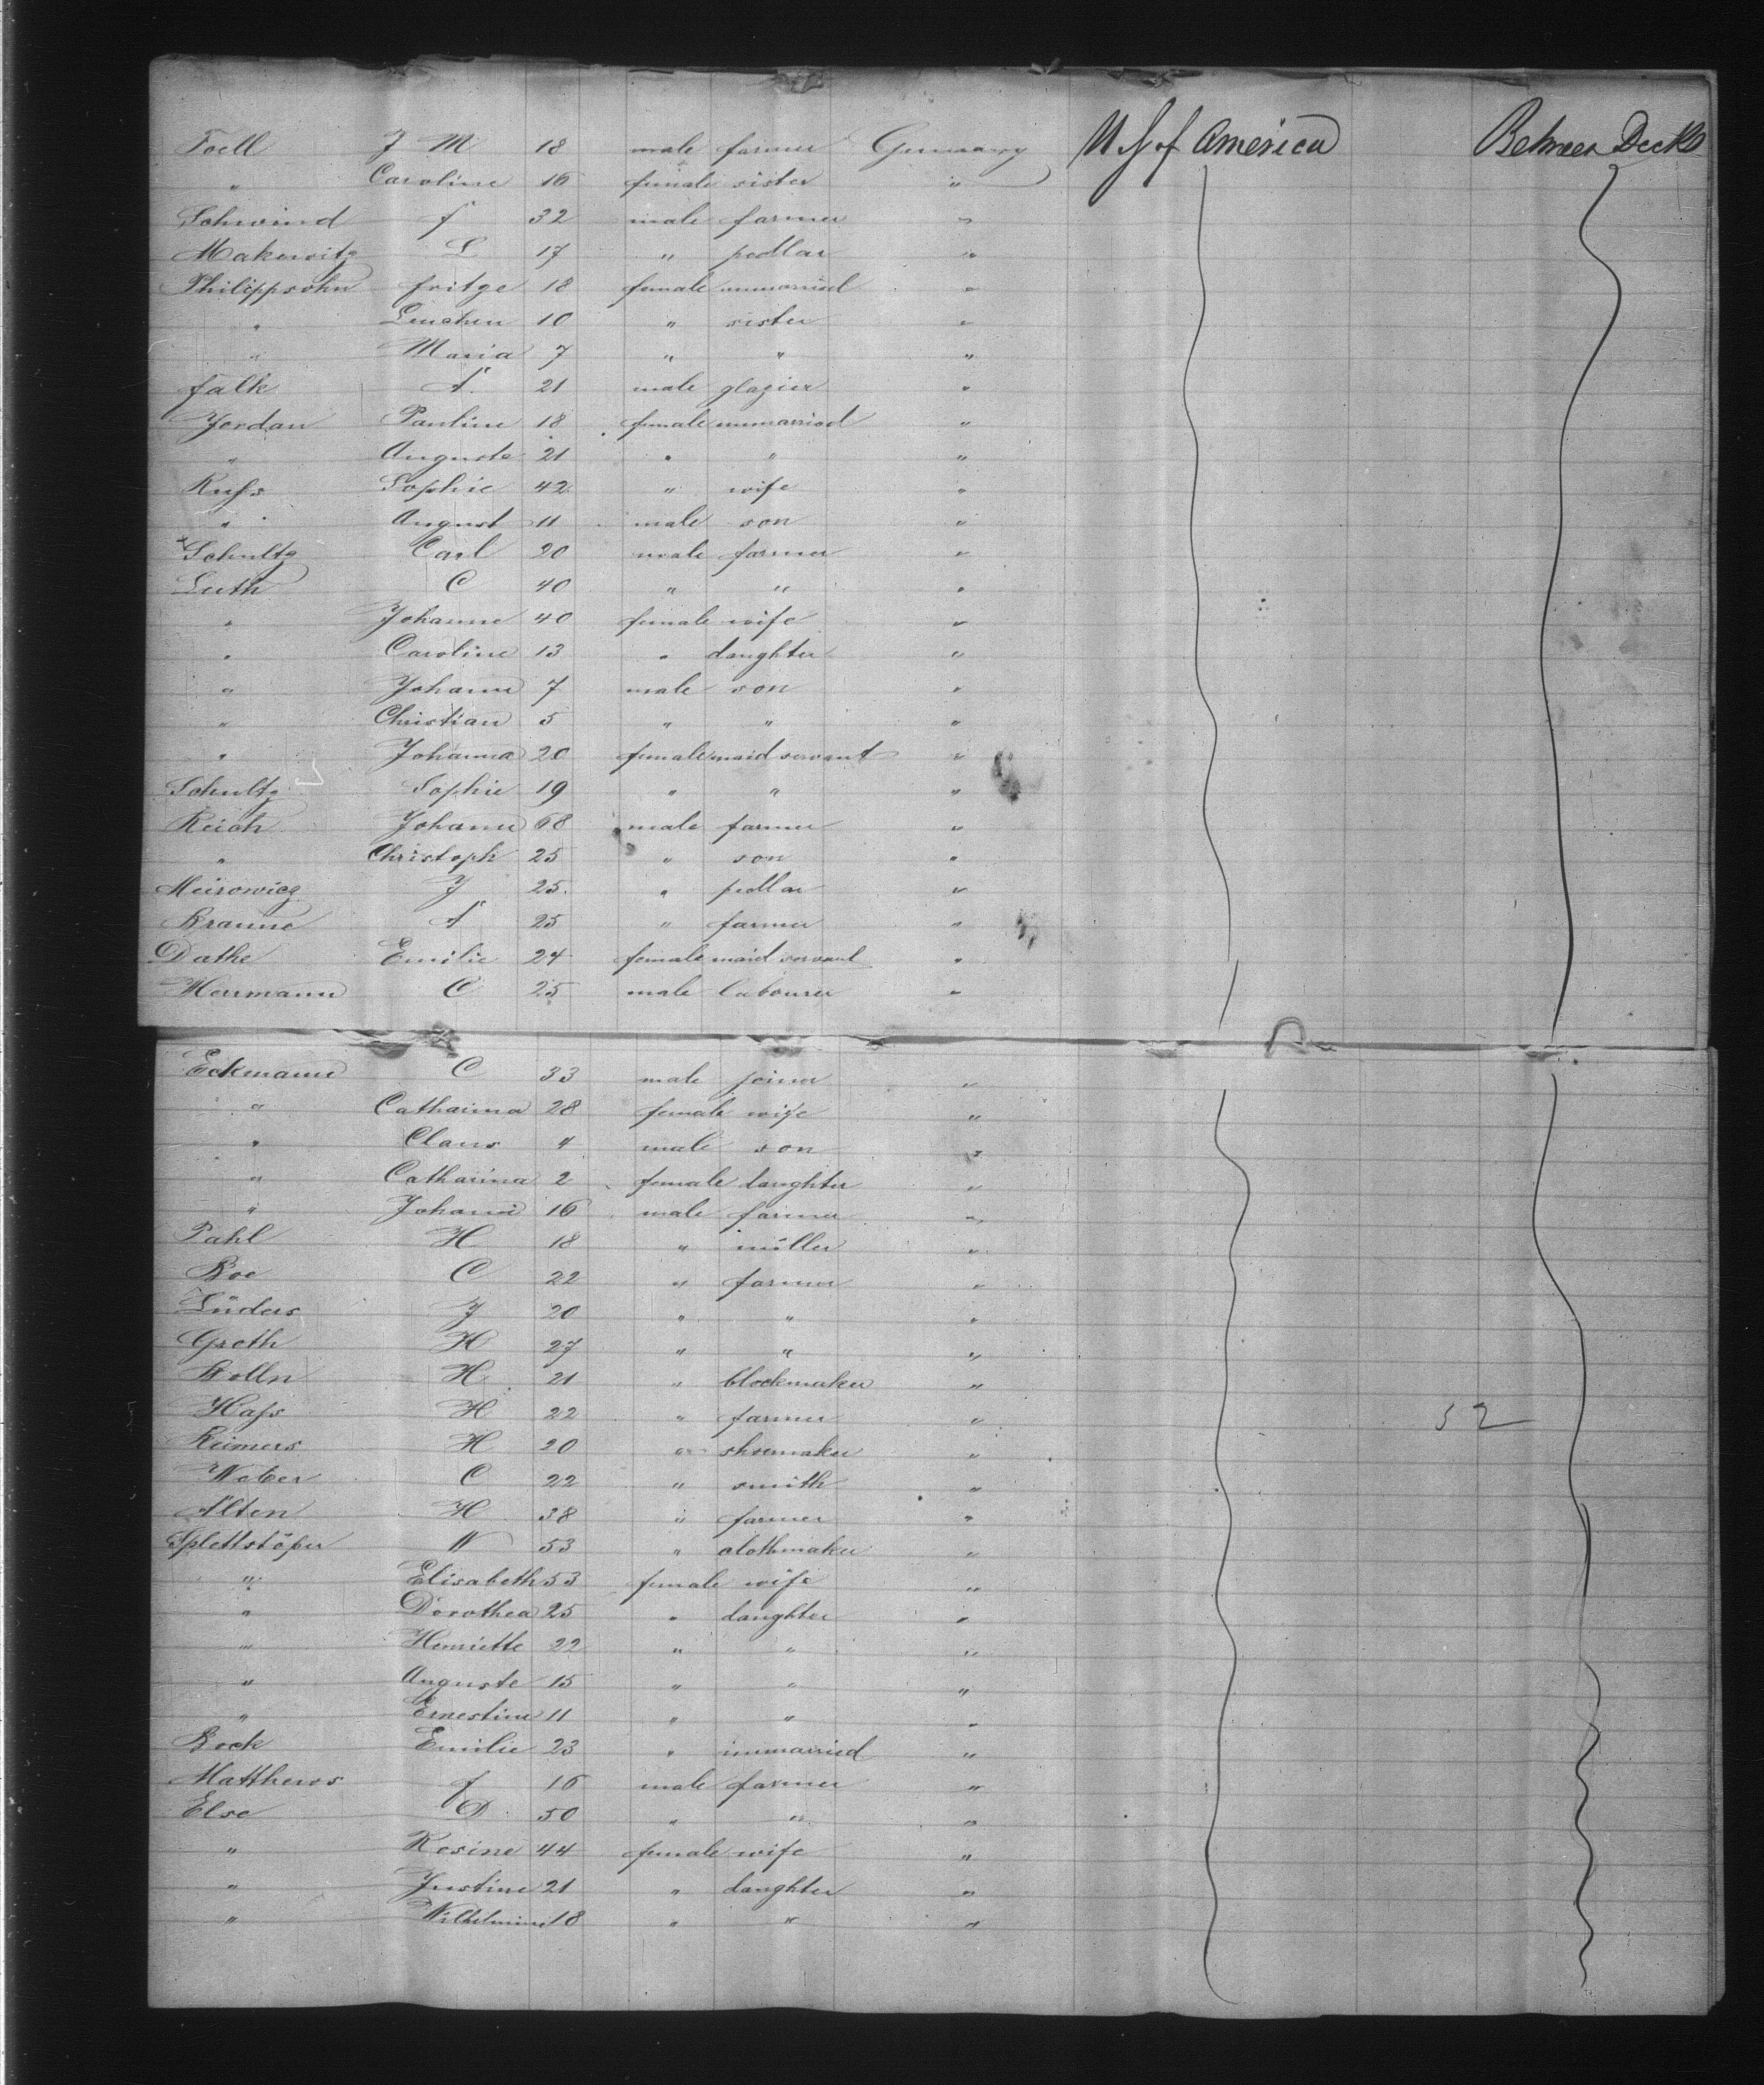 Foell J M 18 male farmer Germany U S of America Between Decks
" Caroline 16 female sister "
Schwind F 32 male farmer "
Makowitz L 17 " pedlar "
Philippsohn Fritze 18 female unmarried "
" Lenchen 10 " sister "
" Maria 7 " " "
Falk A. 21 male glazier "
Jordan Pauline 18 female unmarried "
" Auguste 21 " " "
Kuſs Sophie 42 " wife "
" August 11 male son "
Schultz Carl 20 male farmer "
Luth C 40 " " "
" Johanne 40 female wife "
" Caroline 13 " daughter "
" Johann 7 male son "
" Christian 5 " " "
" Johanna 20 female maid servant "
Schultz Sophie 19 " " "
Reich Johann 68 male farmer "
" Christoph 25 " son "
Meirowicz J 25 " pedlar "
Braune A 25 " farmer "
Dathe Emilie 24 female maid servant "
Herrmann C 25 male labourer "
Eckmann C 33 male joiner "
" Catharina 28 female wife "
" Claus 4 male son "
" Catharina 2 female daughter "
" Johann 16 male farmer "
Pahl H 18 " miller "
Boe C 22 " farmer "
Lüders J 20 " " "
Groth H 27 " " "
H 21 " blockmaker "
Haſs H 22 " farmer " 52
Reimers H 20 " shoemaker "
Weber C 22 " smith "
Alten H 38 " farmer "
Splettstöſser W 53 " clothmaker "
" Elisabeth 53 female wife "
" Dorothea 25 " daughter "
" Henriette 22 " " "
" Auguste 15 " " "
" Ernestine 11 " " "
Bock Emilie 23 " unmarried "
Matthews F 16 male farmer "
Else D 50 " " "
" Rosine 44 female wife "
" Justine 21 " daughter "
" Wilhelmine 18 " " "